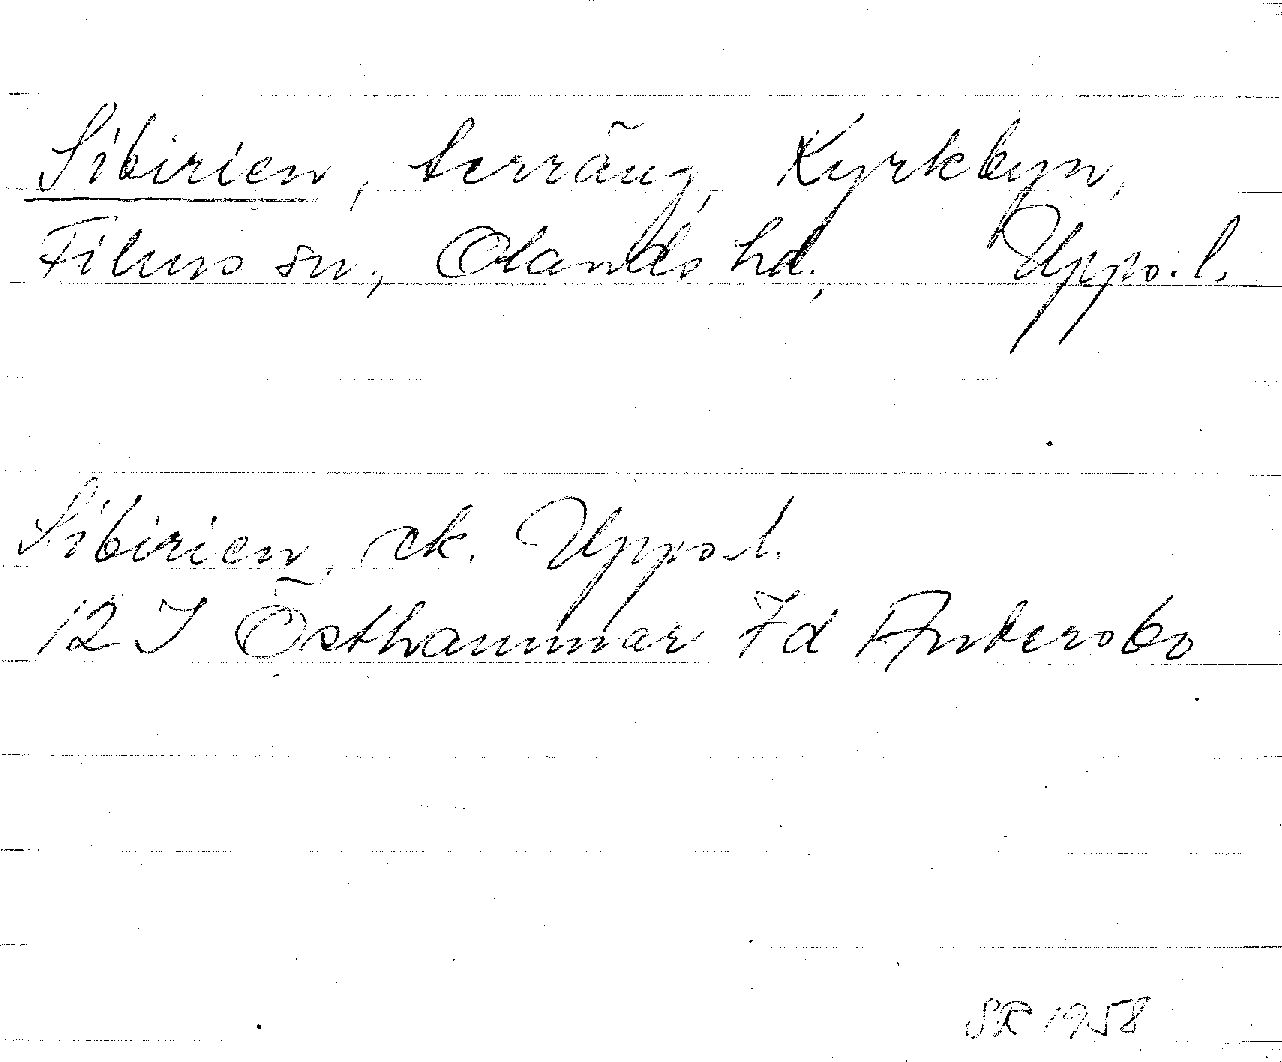 Sibirien, terräng, Kyrkbyn,
Films sn, Olands hd, Upps.l.
Sibirien, ek. Upps.l.
12 I Östhammar 7d Andersbo
SR 1958